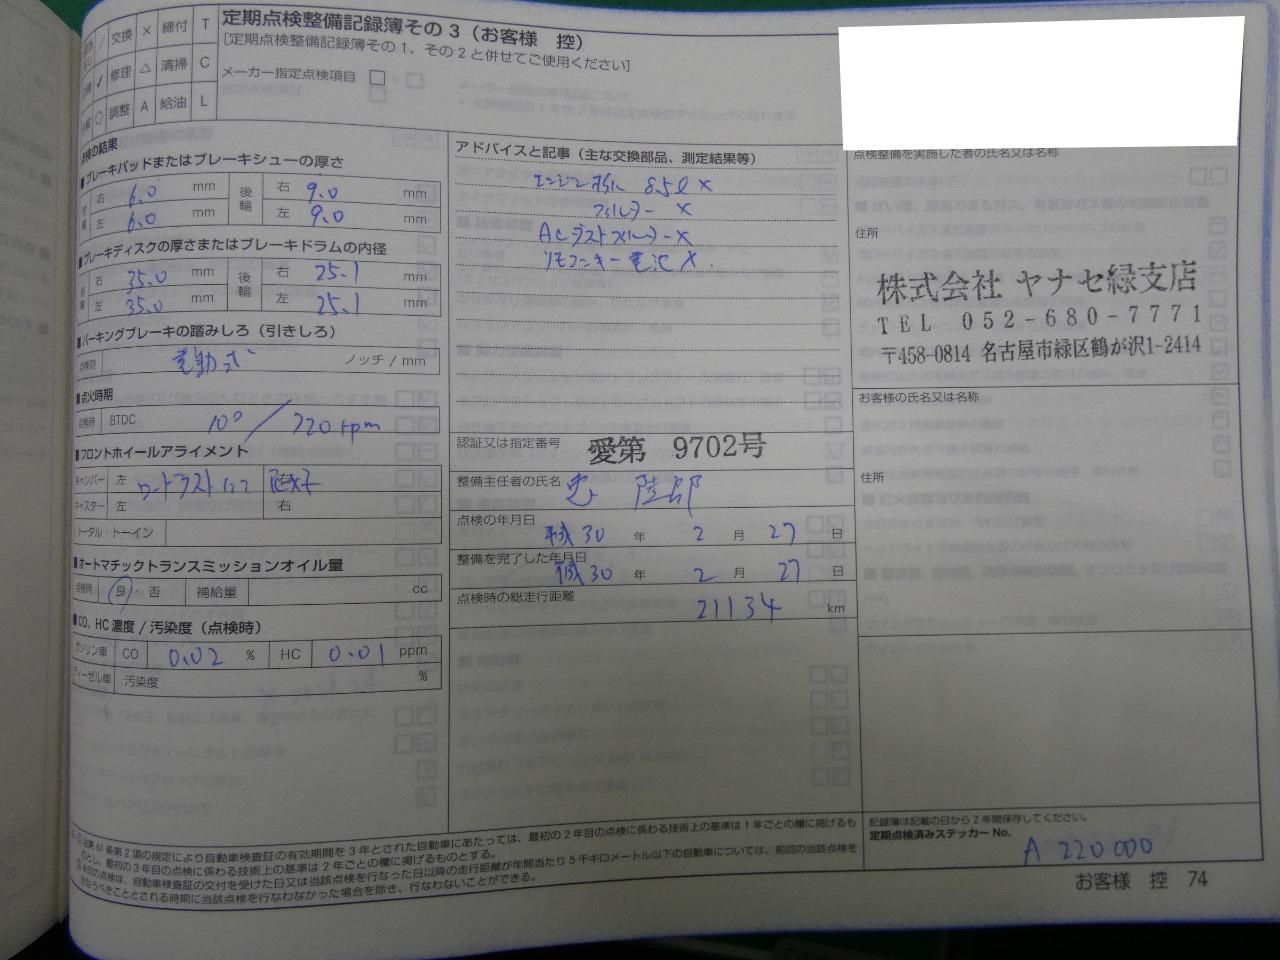 交換 × 締付 T
修理 △ 清掃 C
調整 A 給油 L
定期点検整備記録簿その3(お客様 控)
[定期点検整備記録簿その1、その2と併せてご使用ください]
メーカー指定点検項目
点検の結果
■ブレーキパッドまたはブレーキシューの厚さ
右 6.0 mm 後輪 右 9.0 mm
左 6.0 mm 左 9.0 mm
■ブレーキディスクの厚さまたはブレーキドラムの内径
右 35.0 mm 後輪 右 25.1 mm
左 35.0 mm 左 25.1 mm
■パーキングブレーキの踏みしろ(引きしろ)
点検時 電動式 ノッチ/mm
■点火時期
点検時 BTDC 10° / 720 rpm
■フロントホイールアライメント
キャンバー 左 ロードテストにて 右
キャスター 左 右
トータル・トーイン
■オートマチックトランスミッションオイル量
点検時 良・否 補給量 cc
■CO、HC濃度/汚染度(点検時)
ガソリン車 CO 0.02 % HC 0.01 ppm
ディーゼル車 汚染度 %
アドバイスと記事(主な交換部品、測定結果等)
エンジンオイル 8.5ℓ ×
フィルター ×
ACダストフィルター ×
リモコンキー電池 ×
認証又は指定番号 愛第 9702号
整備主任者の氏名
点検の年月日
平成30年 2月 27日
整備を完了した年月日
平成30年 2月 27日
点検時の総走行距離
21134 km
点検整備を実施した者の氏名又は名称
住所
株式会社 ヤナセ緑支店
TEL 052-680-7771
〒458-0814 名古屋市緑区鶴が沢1-2414
お客様の氏名又は名称
住所
法第61条第2項の規定により自動車検査証の有効期間を3年とされた自動車にあたっては、最初の2年目の点検に係わる技術上の基準は1年ごとの欄に掲げるも
のとし、最初の3年目の点検に係わる技術上の基準は2年ごとの欄に掲げるものとする。
の点検は、自動車検査証の交付を受けた日又は当該点検を行なった日以降の走行距離が年間当たり5千キロメートル以下の自動車については、前回の当該点検を
行なうべきこととされる時期に当該点検を行なわなかった場合を除き、行なわないことができる。
記録簿は記載の日から2年間保存してください。
定期点検済みステッカーNo.
A 220000
お客様 控 74